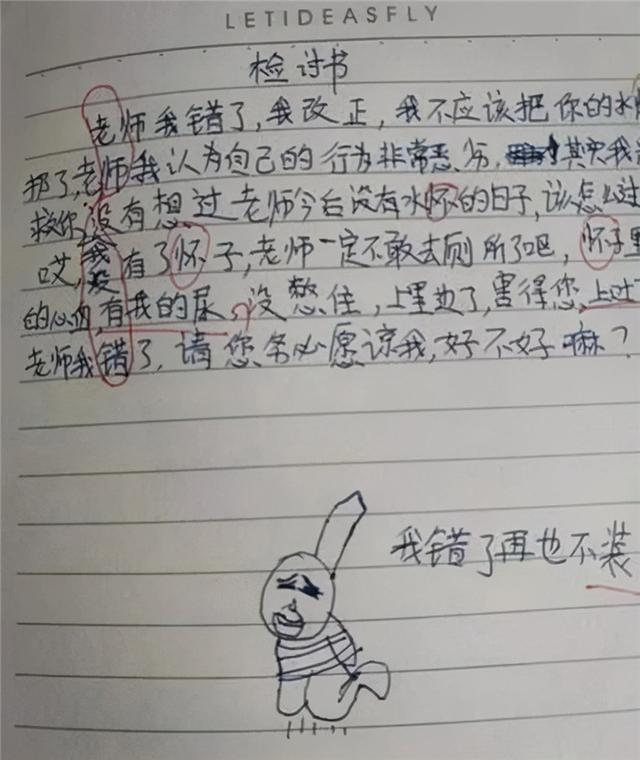 LETIDEASFLY
检讨书
老师我错了,我改正,我不应该把你的水
了,老师我认为自己的行为非常恶劣,其实我
救你,没有想过老师今后没有水怀的日子,该怎么过
哎,我没有了怀子,老师一定不敢去厕所了吧,怀子里
的心血,有我的尿,没憋住,上里边了,害得您上吐
老师我错了,请您务必愿谅我,好不好嘛?
我错了再也不装